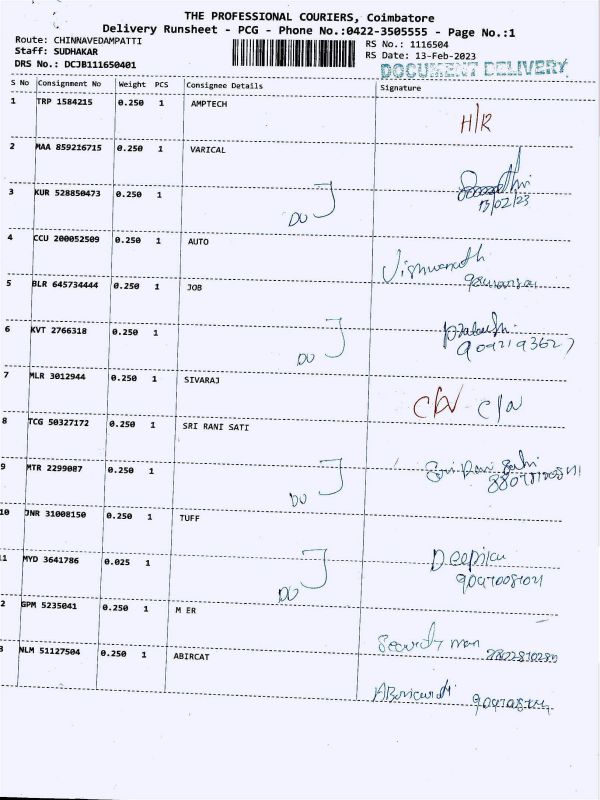 THE PROFESSIONAL COURIERS, Coimbatore
Delivery Runsheet - PCG - Phone No.:0422-3505555 - Page No.:1
Route: CHINNAVEDAMPATTI
Staff: SUDHAKAR
DRS No.: DCJB111650401
RS No.: 1116504
RS Date: 13-Feb-2023
DOCUMENT DELIVERY
S No Consignment No Weight PCS Consignee Details Signature
1 TRP 1584215 0.250 1 AMPTECH
H/R
2 MAA 859216715 0.250 1 VARICAL
13/02/23
3 KUR 528850473 0.250 1
DO
4 CCU 200052509 0.250 1 AUTO
Vishwanath
5 BLR 645734444 0.250 1 JOB
9092193627
6 KVT 2766318 0.250 1
DO
7 MLR 3012944 0.250 1 SIVARAJ
C/A C/A
8 TCG 50327172 0.250 1 SRI RANI SATI
Sri Rani Sati
9 MTR 2299087 0.250 1
DO
10 JNR 31008150 0.250 1 TUFF
Deepica
11 MYD 3641786 0.025 1
DO
2 GPM 5235041 0.250 1 M ER
Security man
3 NLM 51127504 0.250 1 ABIRCAT